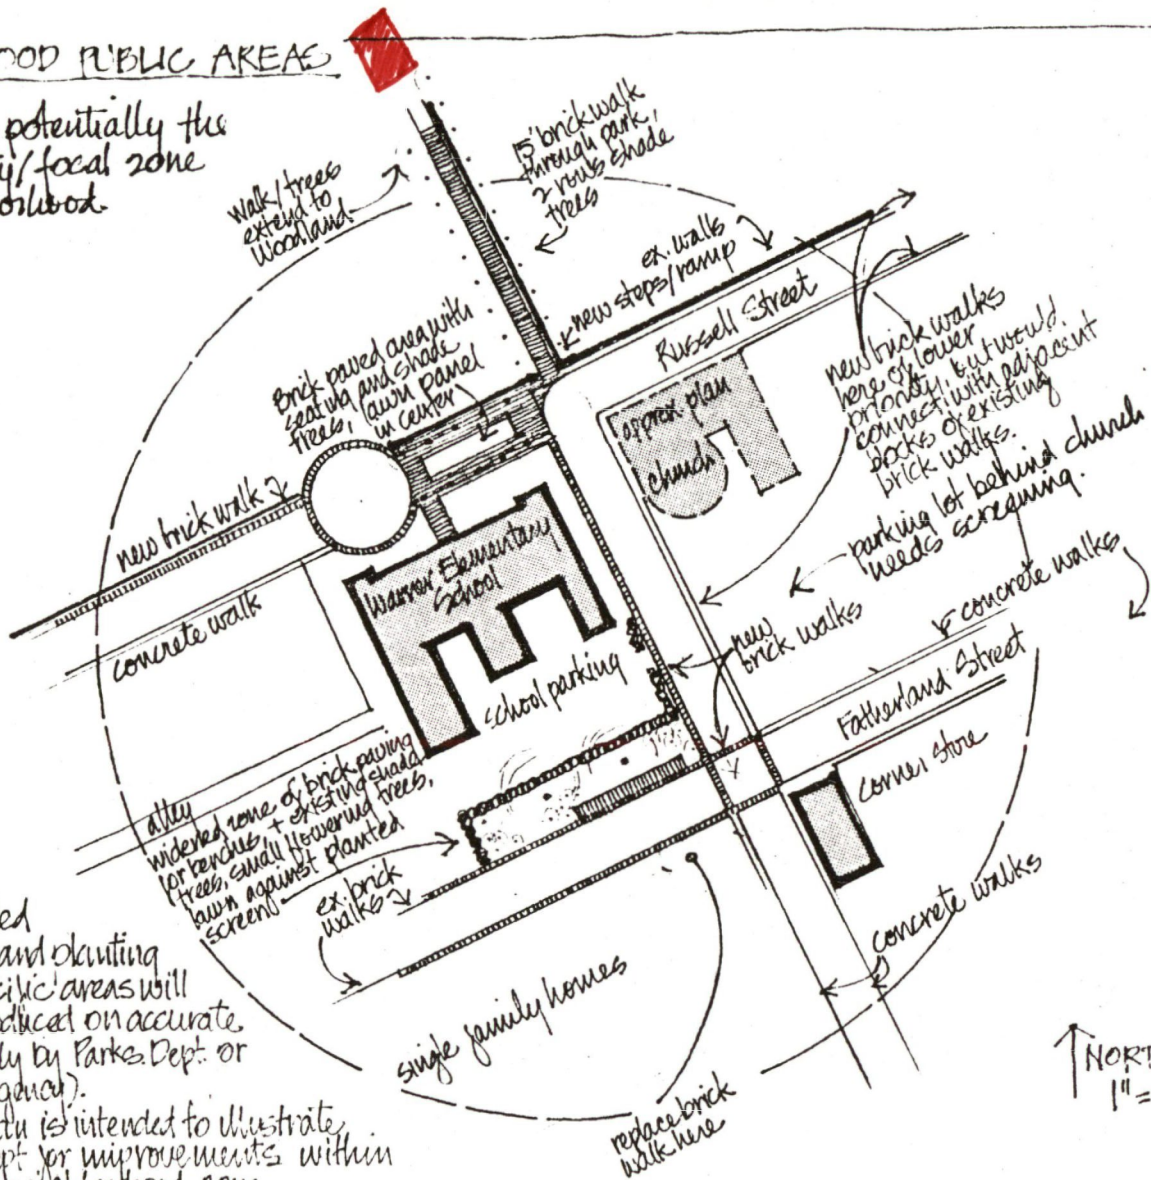 OOD PUBLIC AREAS
potentially the
y/focal zone
orhood.
Walk/trees
extend to
Woodland
15' brick walk
through park,
2 rows shade
trees
ex. walks
new steps/ramp
Russell Street
Brick paved area with
seating and shade
trees, lawn panel
in center
approx. plan
church
new brick walks
here of lower
priority, but would
connect with adjacent
blocks of existing
brick walks.
parking lot behind church
needs screening.
new brick walk
concrete walk
Warner Elementary
School
school parking
new
brick walks
concrete walks
Fatherland Street
corner store
alley
widened zone of brick paving
for benches, + existing shade
trees, small flowering trees,
lawn against planted
screen
ex. brick
walks
concrete walks
single family homes
replace brick
walk here
ed
and planting
cific areas will
oduced on accurate
ly by Parks Dept. or
gency).
tch is intended to illustrate
ept for improvements within
NORT
1"=